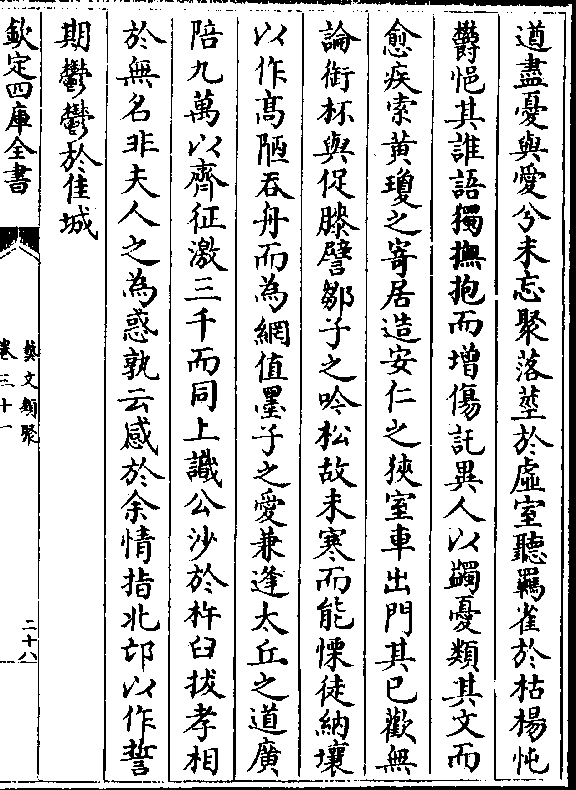 道盡憂與愛兮未忘聚落塟於虛室聽羈雀於枯楊忳
欝悒其誰語獨撫抱而增傷託異人以蠲憂類其文而
愈疾索黄瓊之寄居造安仁之狹室車出門其已歡無
論銜杯與促膝譬鄒子之吟松故未寒而能慄徒納壤
以作髙陋吞舟而為網值墨子之愛兼逢太丘之道廣
陪九萬以齊征激三千而同上識公沙於杵臼拔孝相
於無名非夫人之為惑孰云感於余情指北邙以作誓
期鬱鬱於佳城
欽定四庫全書
藝文類聚
卷三十一
二十八